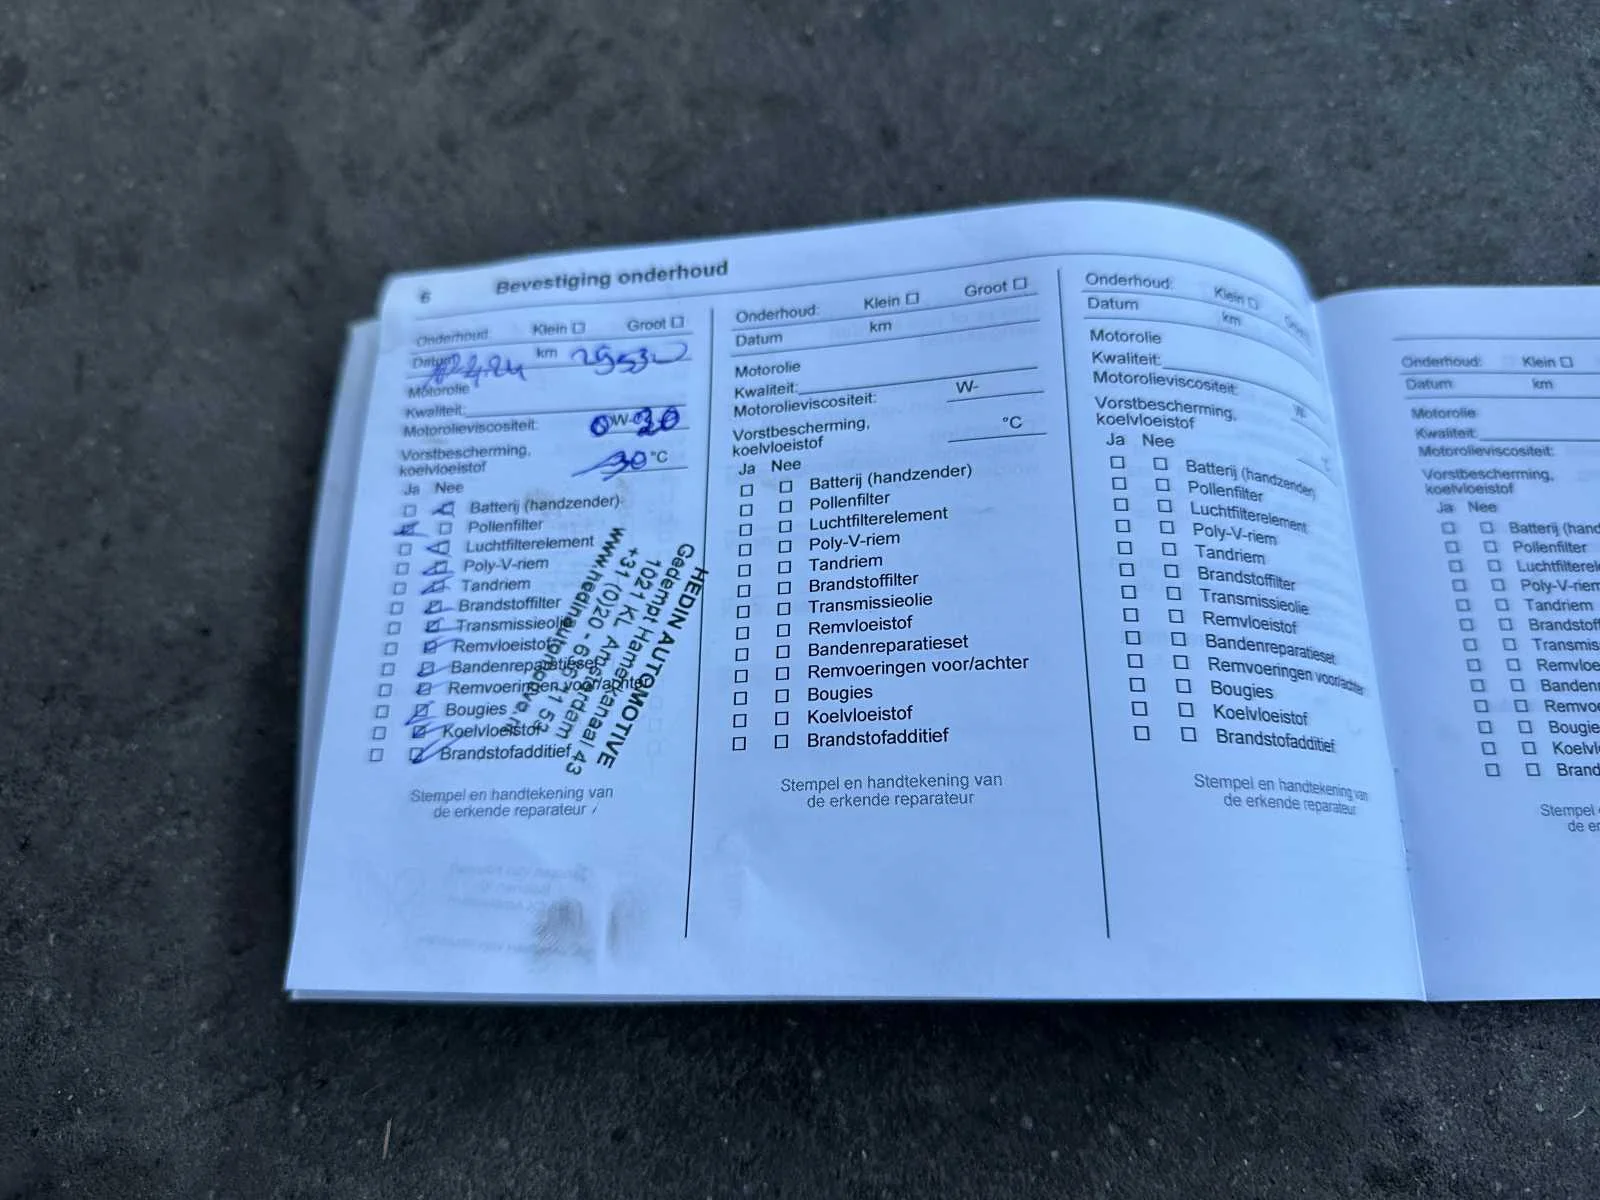 6 Bevestiging onderhoud
Onderhoud: Klein Groot
Datum 4.24 km
Motorolie
Kwaliteit:
Motorolieviscositeit: 0W-20
Vorstbescherming,
koelvloeistof -30 °C
Ja Nee
Batterij (handzender)
Pollenfilter
Luchtfilterelement
Poly-V-riem
Tandriem
Brandstoffilter
Transmissieolie
Remvloeistof
Bandenreparatieset
Remvoeringen voor/achter
Bougies
Koelvloeistof
Brandstofadditief
HEDIN AUTOMOTIVE
Gedempt Hamerkanaal 43
1021 KL Amsterdam
+31 (0)20 -
Stempel en handtekening van
de erkende reparateur
Onderhoud: Klein Groot
Datum km
Motorolie
Kwaliteit:
Motorolieviscositeit: W-
Vorstbescherming,
koelvloeistof °C
Ja Nee
Batterij (handzender)
Pollenfilter
Luchtfilterelement
Poly-V-riem
Tandriem
Brandstoffilter
Transmissieolie
Remvloeistof
Bandenreparatieset
Remvoeringen voor/achter
Bougies
Koelvloeistof
Brandstofadditief
Stempel en handtekening van
de erkende reparateur
Onderhoud: Klein
Datum km
Motorolie
Kwaliteit:
Motorolieviscositeit: W-
Vorstbescherming,
koelvloeistof
Ja Nee
Batterij (handzender)
Pollenfilter
Luchtfilterelement
Poly-V-riem
Tandriem
Brandstoffilter
Transmissieolie
Remvloeistof
Bandenreparatieset
Remvoeringen voor/achter
Bougies
Koelvloeistof
Brandstofadditief
Stempel en handtekening van
de erkende reparateur
Onderhoud: Klein
Datum km
Motorolie
Kwaliteit:
Motorolieviscositeit:
Vorstbescherming,
koelvloeistof
Ja Nee
Batterij (han
Pollenfilter
Luchtfilterel
Poly-V-riem
Tandriem
Brandstof
Transmis
Remvloe
Banden
Remvo
Bougie
Koelvl
Brand
Stempel
de er